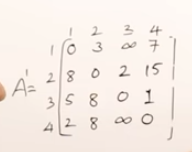 1 2 3 4
1 0 3 ∞ 7
A¹= 2 8 0 2 15
3 5 8 0 1
4 2 8 ∞ 0